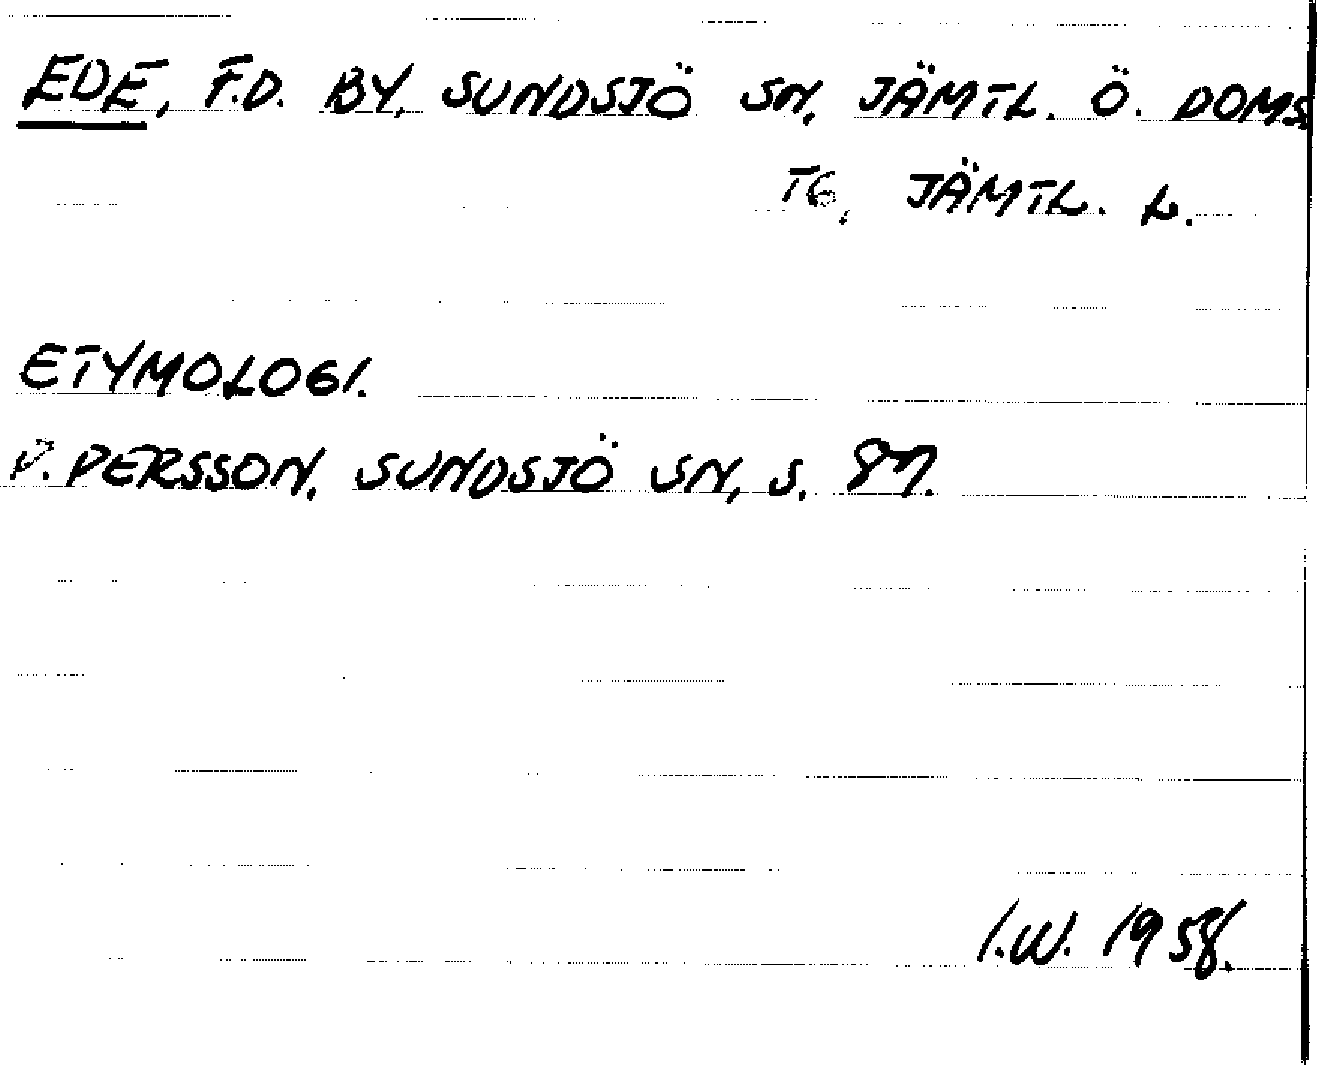 EDE, F.D. BY, SUNDSJÖ SN, JÄMTL. Ö. DOMS.
TG, JÄMTL. L.
ETYMOLOGI.
P. PERSSON, SUNDSJÖ SN, S. 87.
I.W. 1958.